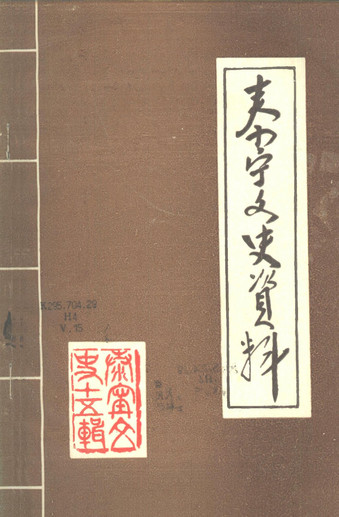 泰宁文史資料
K295.704.29
H4
V.15
泰寧文
史十五輯